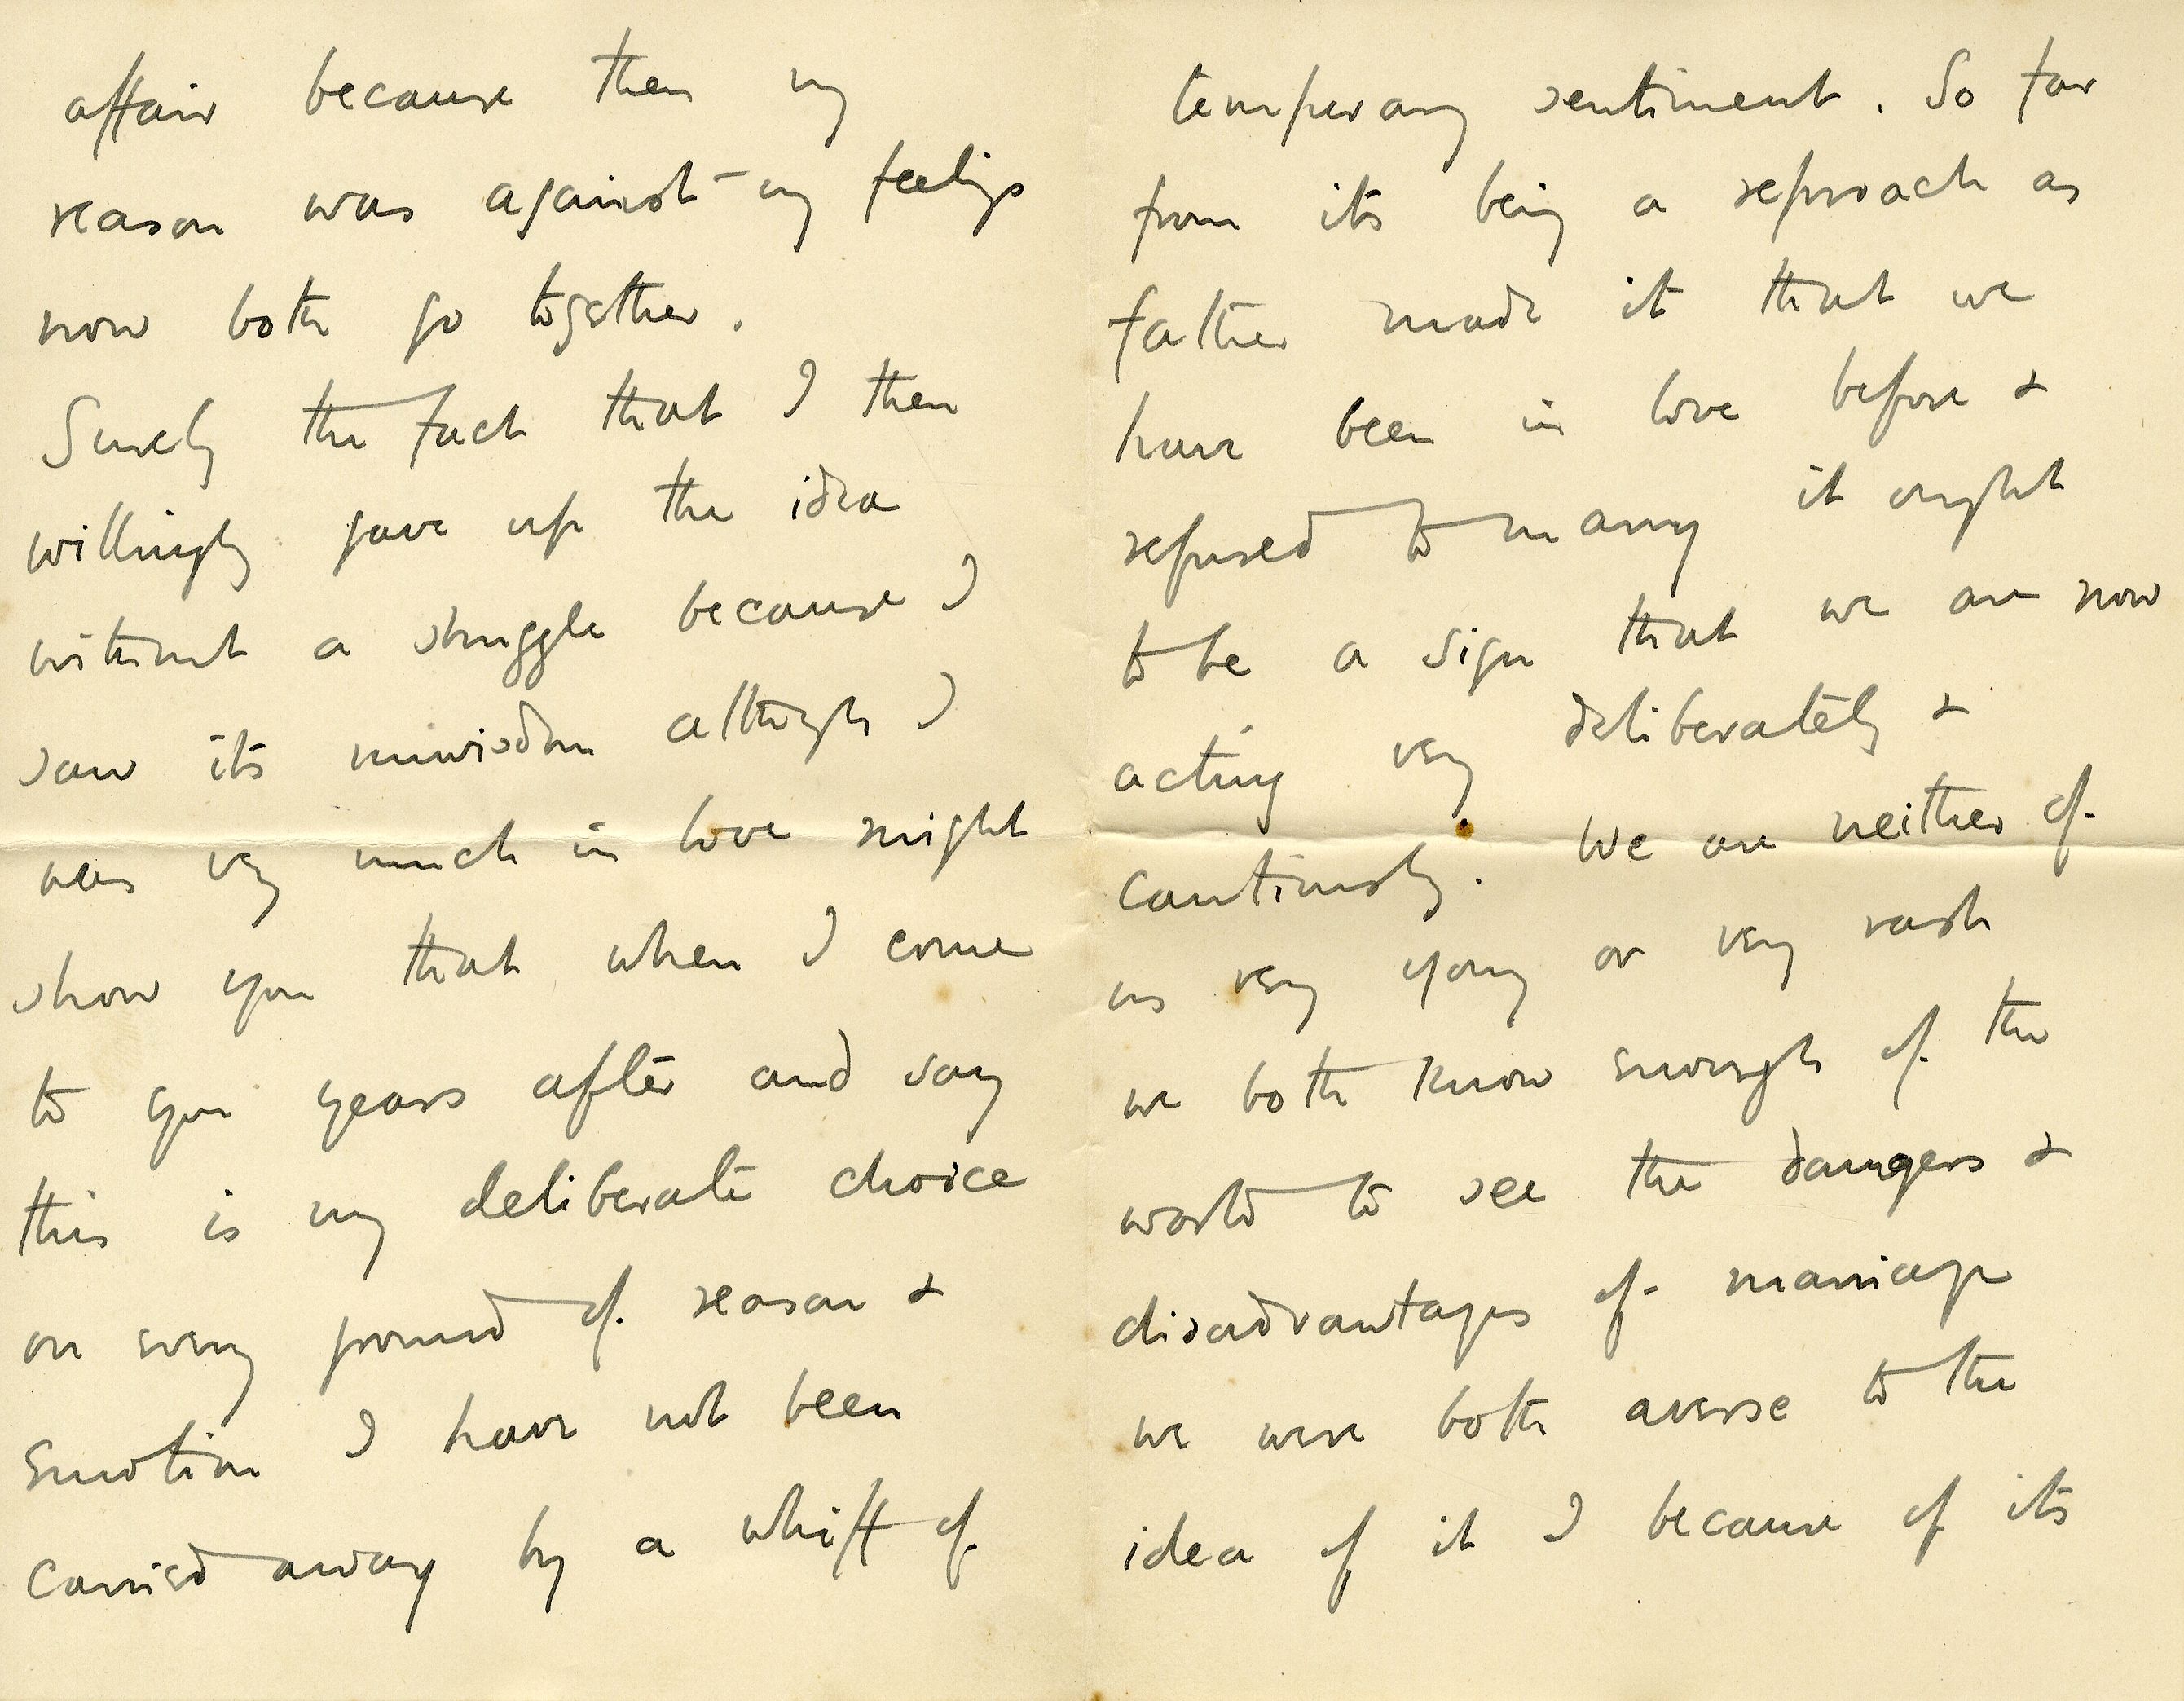 affair because then my
reason was against my feelings
now both go together.
Surely the fact that I then
willingly gave up the idea
without a struggle because I
saw its unwisdom although I
was very much in love might
show you that when I come
to you years after and say
this is my deliberate choice
on every ground of reason &
emotion I have not been
carried away by a whiff of
temporary sentiment. So far
from its being a reproach as
father made it that we
have been in love before &
refused to marry it ought
to be a sign that we are now
acting very deliberately &
cautiously. We are neither of
us very young or very rash
we both know enough of the
world to see the dangers &
disadvantages of marriage
we were both averse to the
idea of it I because of its